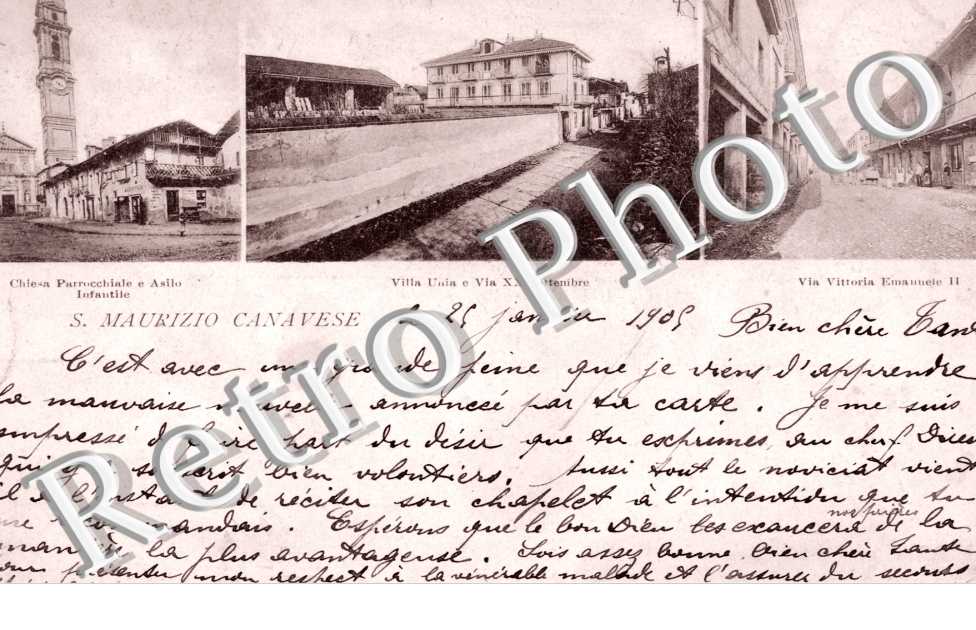 Chiesa Parrocchiale e Asilo
Infantile
Villa Unia e Via XX Settembre
Via Vittoria Emanuele II
S. MAURIZIO CANAVESE
le 25 janvier 1905
Bien chère
C'est avec une grande peine que je viens d'apprendre
la mauvaise nouvelle annoncée par ta carte. Je me suis
empressé de faire part du désir que tu exprimes au cher
qui y souscrit bien volontiers. Aussi tout le noviciat vient
il à l'instant de réciter son chapelet à l'intention que tu
me recommandais. Espérons que le bon Dieu les exaucera de la
nos prières
manière la plus avantageuse. Sois assez bonne, bien chère
pour présenter mon respect à la vénérable malade et l'assurer du secours
Retro Photo